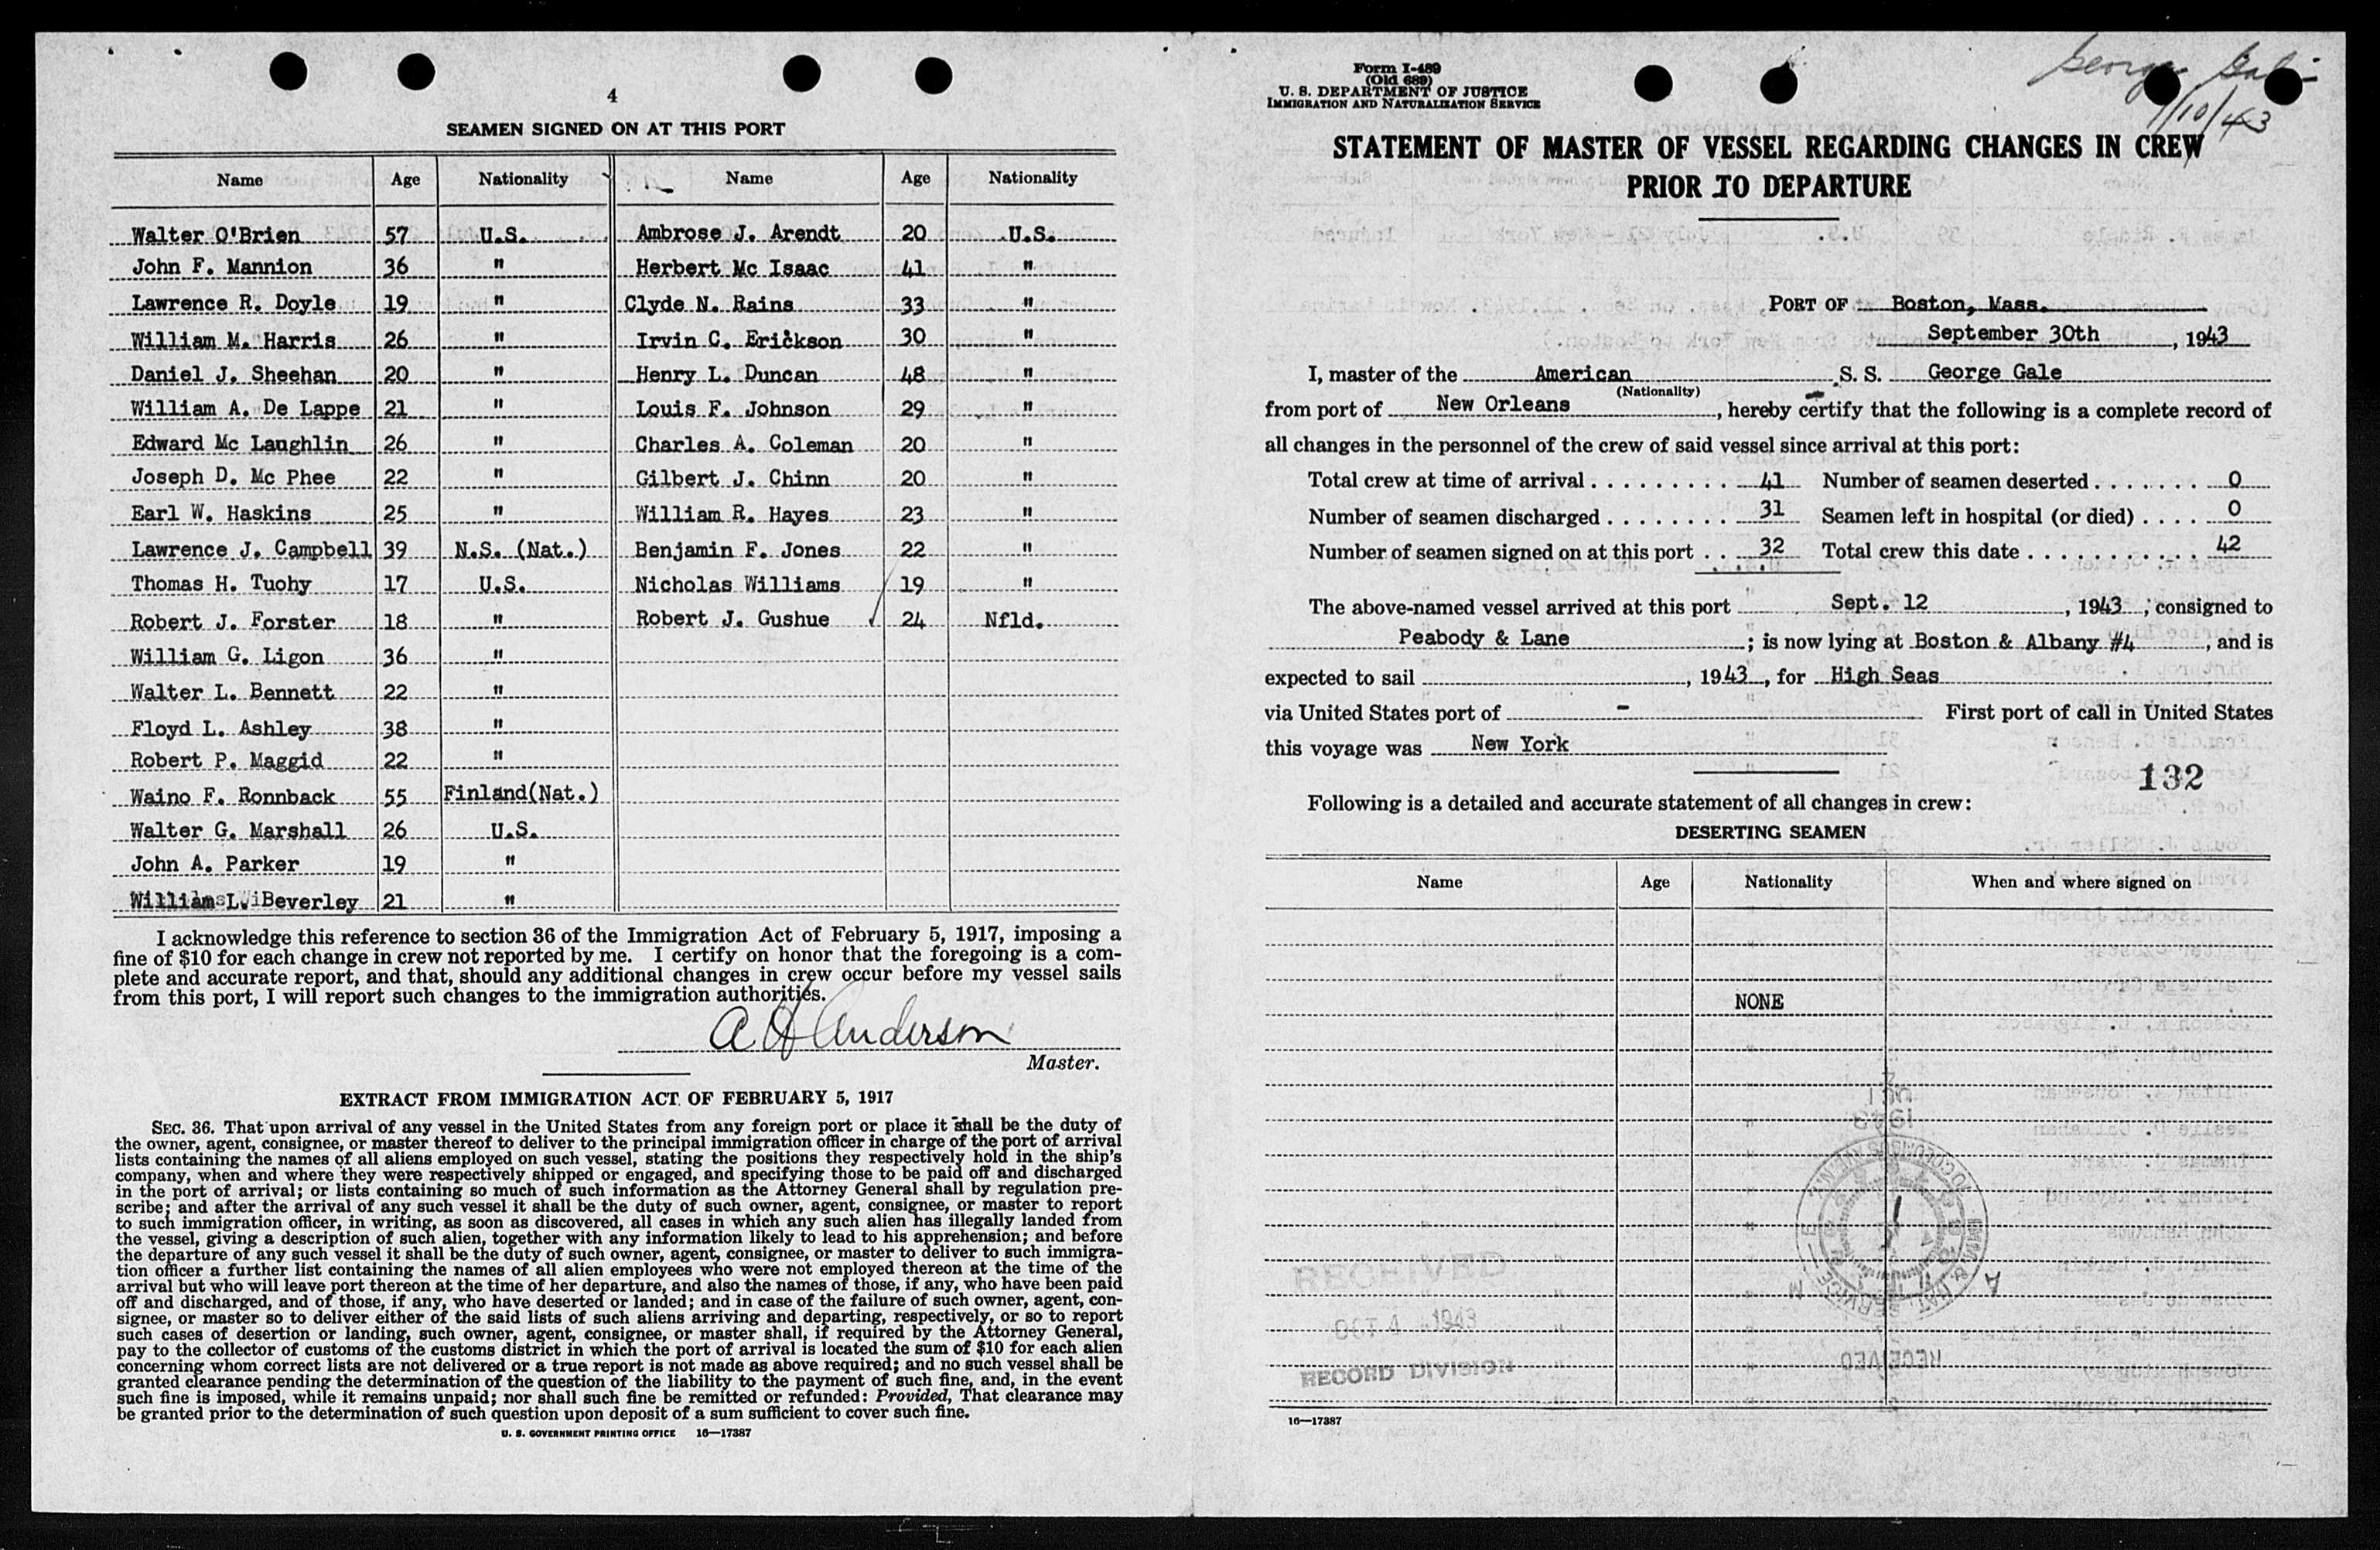 4
SEAMEN SIGNED ON AT THIS PORT
Name Age Nationality Name Age Nationality
Walter O'Brien 57 U.S. Ambrose J. Arendt 20 U.S.
John F. Mannion 36 " Herbert Mc Isaac 41 "
Lawrence R. Doyle 19 " Clyde N. Rains 33 "
William M. Harris 26 " Irvin C. Erickson 30 "
Daniel J. Sheehan 20 " Henry L. Duncan 48 "
William A. De Lappe 21 " Louis F. Johnson 29 "
Edward Mc Laughlin 26 " Charles A. Coleman 20 "
Joseph D. Mc Phee 22 " Gilbert J. Chinn 20 "
Earl W. Haskins 25 " William R. Hayes 23 "
Lawrence J. Campbell 39 N.S. (Nat.) Benjamin F. Jones 22 "
Thomas H. Tuohy 17 U.S. Nicholas Williams 19 "
Robert J. Forster 18 " Robert J. Gushue 24 Nfld.
William G. Ligon 36 "
Walter L. Bennett 22 "
Floyd L. Ashley 38 "
Robert P. Maggid 22 "
Waino F. Ronnback 55 Finland(Nat.)
Walter G. Marshall 26 U.S.
John A. Parker 19 "
William L. Beverley 21 "
I acknowledge this reference to section 36 of the Immigration Act of February 5, 1917, imposing a
fine of $10 for each change in crew not reported by me. I certify on honor that the foregoing is a com-
plete and accurate report, and that, should any additional changes in crew occur before my vessel sails
from this port, I will report such changes to the immigration authorities.
A H Anderson
Master.
EXTRACT FROM IMMIGRATION ACT OF FEBRUARY 5, 1917
SEC. 36. That upon arrival of any vessel in the United States from any foreign port or place it shall be the duty of
the owner, agent, consignee, or master thereof to deliver to the principal immigration officer in charge of the port of arrival
lists containing the names of all aliens employed on such vessel, stating the positions they respectively hold in the ship's
company, when and where they were respectively shipped or engaged, and specifying those to be paid off and discharged
in the port of arrival; or lists containing so much of such information as the Attorney General shall by regulation pre-
scribe; and after the arrival of any such vessel it shall be the duty of such owner, agent, consignee, or master to report
to such immigration officer, in writing, as soon as discovered, all cases in which any such alien has illegally landed from
the vessel, giving a description of such alien, together with any information likely to lead to his apprehension; and before
the departure of any such vessel it shall be the duty of such owner, agent, consignee, or master to deliver to such immigra-
tion officer a further list containing the names of all alien employees who were not employed thereon at the time of the
arrival but who will leave port thereon at the time of her departure, and also the names of those, if any, who have been paid
off and discharged, and of those, if any, who have deserted or landed; and in case of the failure of such owner, agent, con-
signee, or master so to deliver either of the said lists of such aliens arriving and departing, respectively, or so to report
such cases of desertion or landing, such owner, agent, consignee, or master shall, if required by the Attorney General,
pay to the collector of customs of the customs district in which the port of arrival is located the sum of $10 for each alien
concerning whom correct lists are not delivered or a true report is not made as above required; and no such vessel shall be
granted clearance pending the determination of the question of the liability to the payment of such fine, and, in the event
such fine is imposed, while it remains unpaid; nor shall such fine be remitted or refunded: Provided, That clearance may
be granted prior to the determination of such question upon deposit of a sum sufficient to cover such fine.
U. S. GOVERNMENT PRINTING OFFICE 16—17387
Form I-489
(Old 689)
U. S. DEPARTMENT OF JUSTICE
IMMIGRATION AND NATURALIZATION SERVICE
George Gale
1/10/43
STATEMENT OF MASTER OF VESSEL REGARDING CHANGES IN CREW
PRIOR TO DEPARTURE
PORT OF Boston, Mass.
September 30th, 1943
I, master of the American S. S. George Gale
(Nationality)
from port of New Orleans, hereby certify that the following is a complete record of
all changes in the personnel of the crew of said vessel since arrival at this port:
Total crew at time of arrival . . . . . . . . . . 41 Number of seamen deserted . . . . . . . 0
Number of seamen discharged . . . . . . . . 31 Seamen left in hospital (or died) . . . . 0
Number of seamen signed on at this port . . 32 Total crew this date . . . . . . . . . . . 42
The above-named vessel arrived at this port Sept. 12, 1943; consigned to
Peabody & Lane; is now lying at Boston & Albany #4, and is
expected to sail , 1943, for High Seas
via United States port of - First port of call in United States
this voyage was New York
132
Following is a detailed and accurate statement of all changes in crew:
DESERTING SEAMEN
Name Age Nationality When and where signed on
NONE
RECEIVED
OCT 4 1943
RECORD DIVISION
16—17387